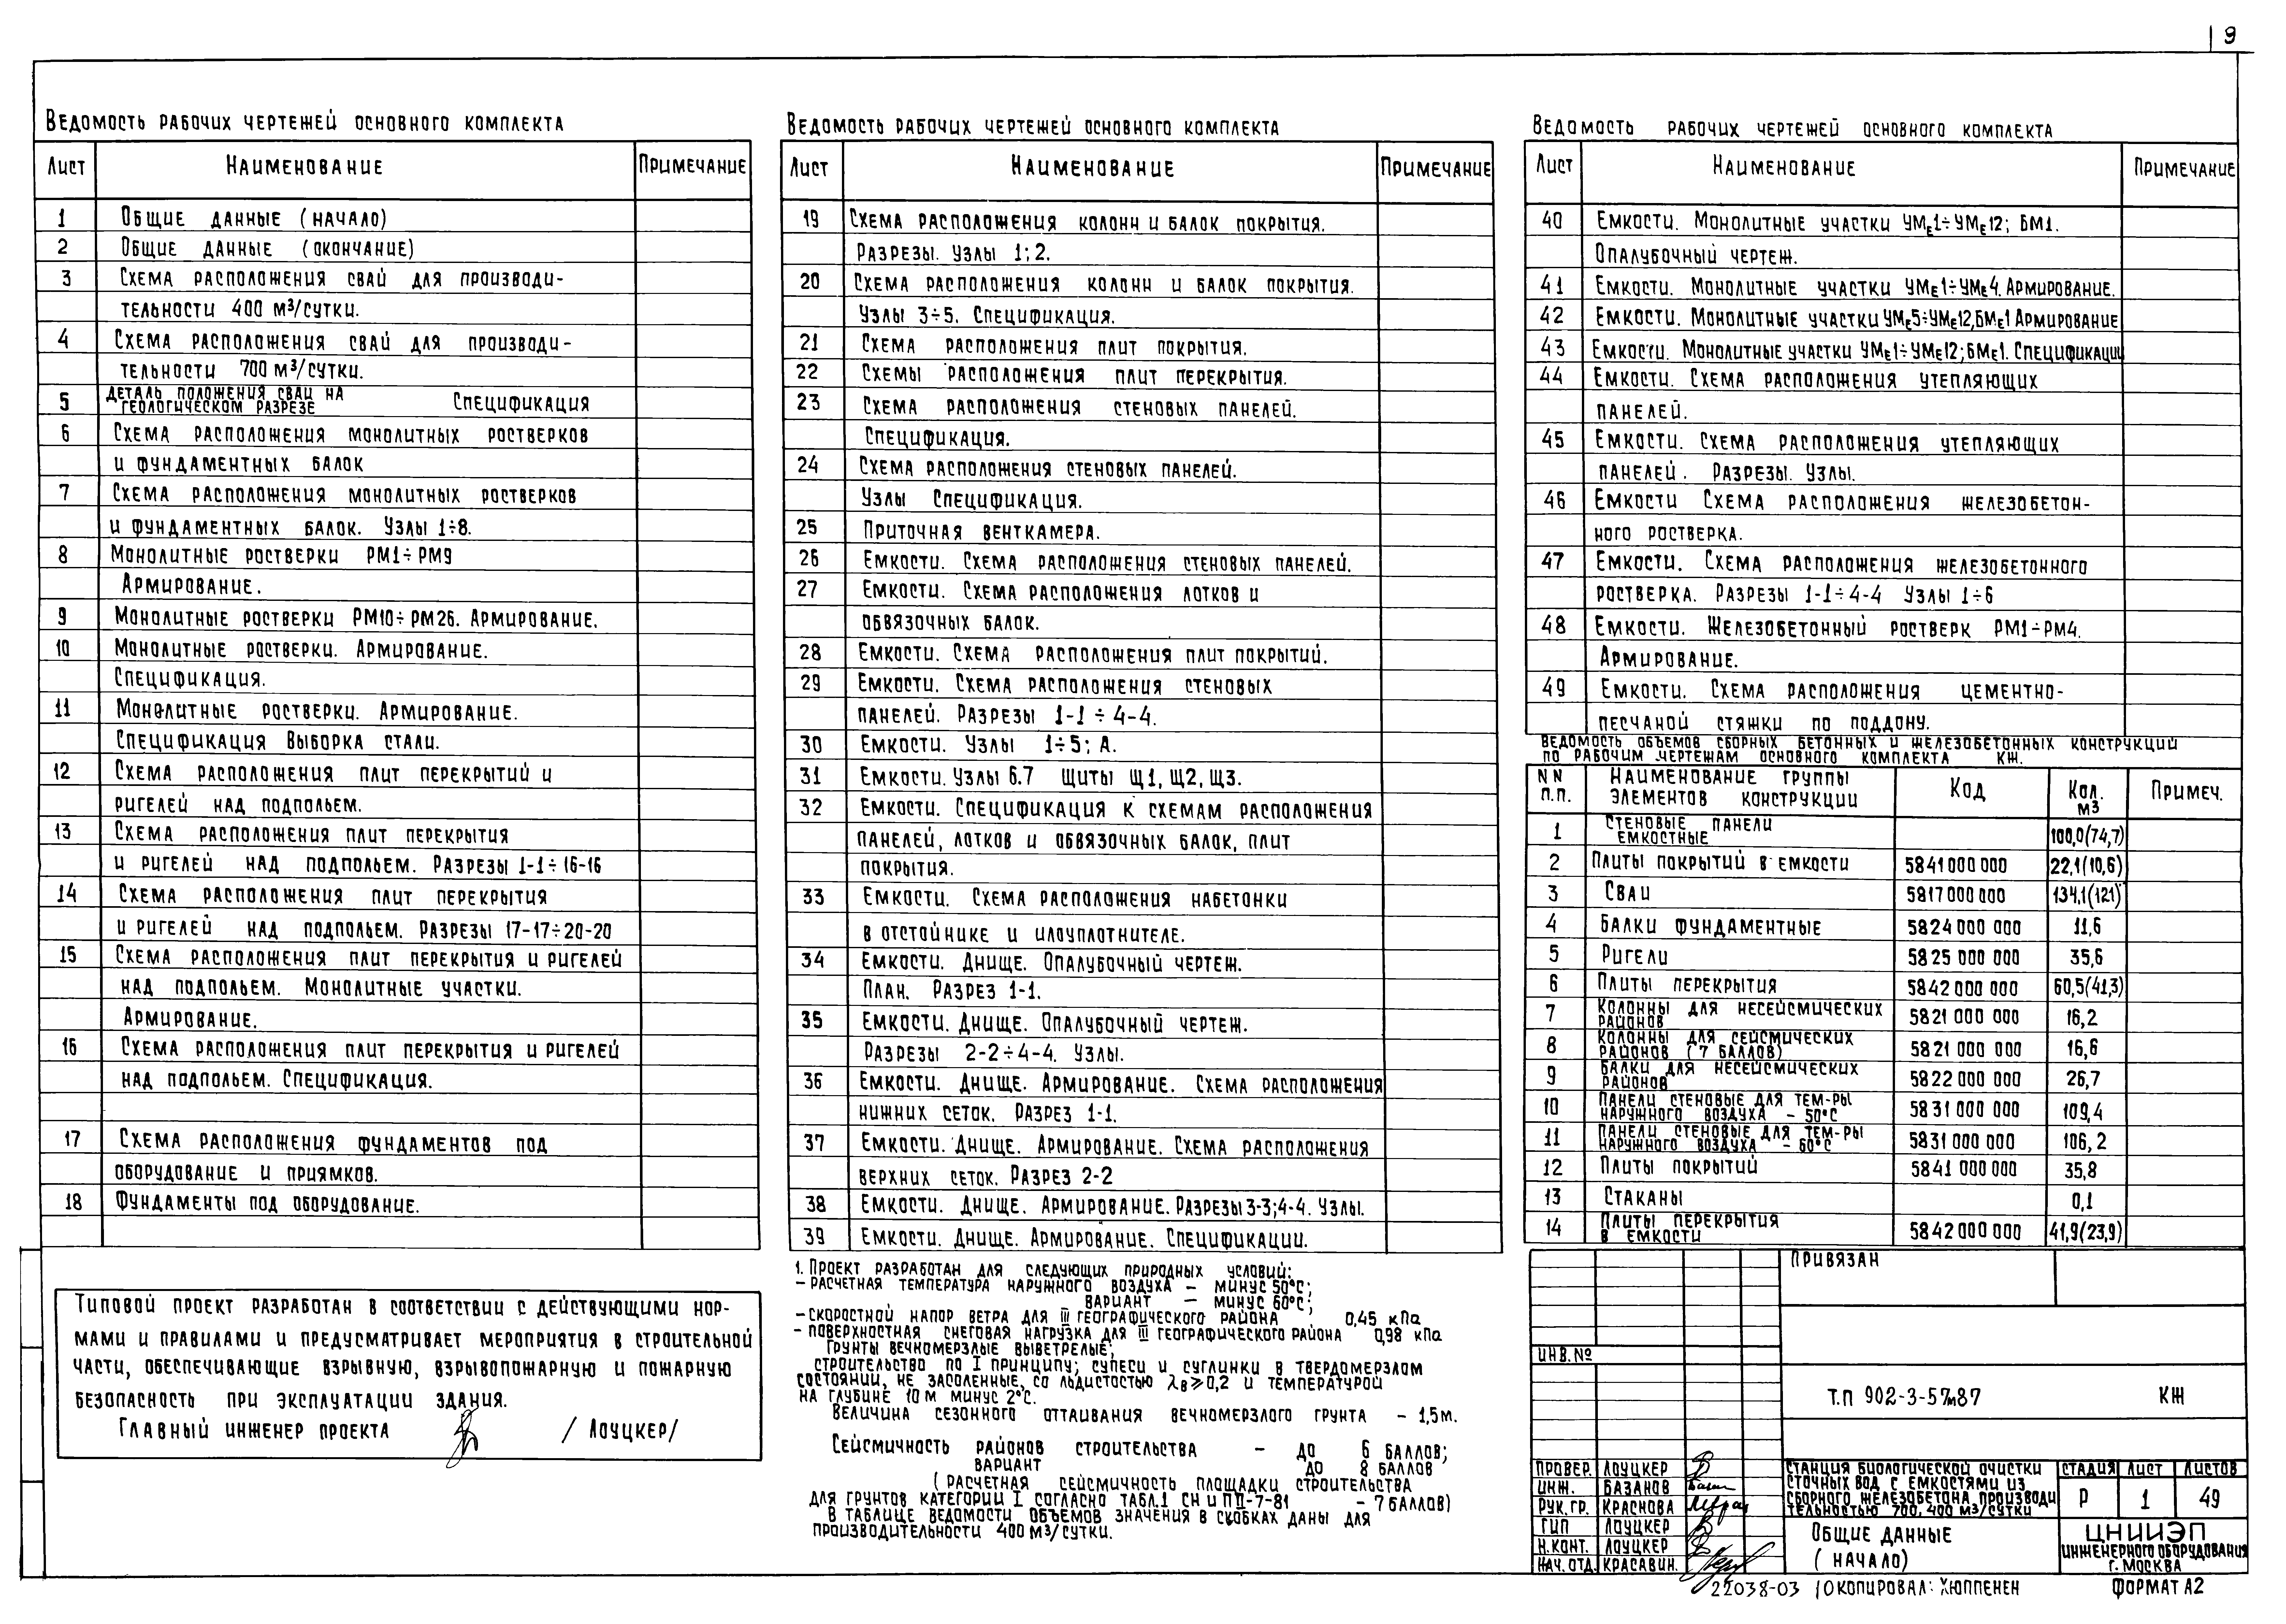 9
Ведомость рабочих чертежей основного комплекта
Лист Наименование Примечание
1 Общие данные (начало)
2 Общие данные (окончание)
3 Схема расположения свай для производи-
тельности 400 м³/сутки.
4 Схема расположения свай для производи-
тельности 700 м³/сутки.
5 Деталь положения сваи на геологическом разрезе Спецификация
6 Схема расположения монолитных ростверков
и фундаментных балок
7 Схема расположения монолитных ростверков
и фундаментных балок. Узлы 1÷8.
8 Монолитные ростверки РМ1÷РМ9
Армирование.
9 Монолитные ростверки РМ10÷РМ26. Армирование.
10 Монолитные ростверки. Армирование.
Спецификация.
11 Монолитные ростверки. Армирование.
Спецификация Выборка стали.
12 Схема расположения плит перекрытий и
ригелей над подпольем.
13 Схема расположения плит перекрытия
и ригелей над подпольем. Разрезы 1-1÷16-16
14 Схема расположения плит перекрытия
и ригелей над подпольем. Разрезы 17-17÷20-20
15 Схема расположения плит перекрытия и ригелей
над подпольем. Монолитные участки.
Армирование.
16 Схема расположения плит перекрытия и ригелей
над подпольем. Спецификация.
17 Схема расположения фундаментов под
оборудование и приямков.
18 Фундаменты под оборудование.
Типовой проект разработан в соответствии с действующими нор-
мами и правилами и предусматривает мероприятия в строительной
части, обеспечивающие взрывную, взрывопожарную и пожарную
безопасность при эксплуатации здания.
Главный инженер проекта /Лоуцкер/
Ведомость рабочих чертежей основного комплекта
Лист Наименование Примечание
19 Схема расположения колонн и балок покрытия.
Разрезы. Узлы 1; 2.
20 Схема расположения колонн и балок покрытия.
Узлы 3÷5. Спецификация.
21 Схема расположения плит покрытия.
22 Схемы расположения плит перекрытия.
23 Схема расположения стеновых панелей.
Спецификация.
24 Схема расположения стеновых панелей.
Узлы Спецификация.
25 Приточная венткамера.
26 Емкости. Схема расположения стеновых панелей.
27 Емкости. Схема расположения лотков и
обвязочных балок.
28 Емкости. Схема расположения плит покрытий.
29 Емкости. Схема расположения стеновых
панелей. Разрезы 1-1 ÷ 4-4.
30 Емкости. Узлы 1÷5; А.
31 Емкости. Узлы 6.7 Щиты Щ1, Щ2, Щ3.
32 Емкости. Спецификация к схемам расположения
панелей, лотков и обвязочных балок, плит
покрытия.
33 Емкости. Схема расположения набетонки
в отстойнике и илоуплотнителе.
34 Емкости. Днище. Опалубочный чертеж.
План. Разрез 1-1.
35 Емкости. Днище. Опалубочный чертеж.
Разрезы 2-2÷4-4. Узлы.
36 Емкости. Днище. Армирование. Схема расположения
нижних сеток. Разрез 1-1.
37 Емкости. Днище. Армирование. Схема расположения
верхних сеток. Разрез 2-2
38 Емкости. Днище. Армирование. Разрезы 3-3; 4-4. Узлы.
39 Емкости. Днище. Армирование. Спецификации.
1. Проект разработан для следующих природных условий:
– расчетная температура наружного воздуха – минус 50°С;
вариант – минус 60°С;
– скоростной напор ветра для III географического района 0,45 кПа
– поверхностная снеговая нагрузка для III географического района 0,98 кПа
грунты вечномерзлые выветрелые;
строительство по I принципу; супеси и суглинки в твердомерзлом
состоянии, не засоленные, со льдистостью λв⩾0,2 и температурой
на глубине 10 м минус 2°С.
Величина сезонного оттаивания вечномерзлого грунта – 1,5м.
Сейсмичность районов строительства – до 6 баллов;
вариант до 8 баллов
(расчетная сейсмичность площадки строительства
для грунтов категории I согласно табл.1 СНиП II-7-81 – 7 баллов)
В таблице ведомости объемов значения в скобках даны для
производительности 400 м3/сутки.
Ведомость рабочих чертежей основного комплекта
Лист Наименование Примечание
40 Емкости. Монолитные участки УМЕ1÷УМЕ12; БМ1.
Опалубочный чертеж.
41 Емкости. Монолитные участки УМЕ1÷УМЕ4. Армирование.
42 Емкости. Монолитные участки УМЕ5÷УМЕ12, БМЕ1 Армирование
43 Емкости. Монолитные участки УМЕ1÷УМЕ12; БМЕ1. Спецификации
44 Емкости. Схема расположения утепляющих
панелей.
45 Емкости. Схема расположения утепляющих
панелей. Разрезы. Узлы.
46 Емкости Схема расположения железобетон-
ного ростверка.
47 Емкости. Схема расположения железобетонного
ростверка. Разрезы 1-1÷4-4 Узлы 1÷6
48 Емкости. Железобетонный ростверк РМ1÷РМ4.
Армирование.
49 Емкости. Схема расположения цементно-
песчаной стяжки по поддону.
Ведомость объемов сборных бетонных и железобетонных конструкций
по рабочим чертежам основного комплекта КЖ.
NN п.п. Наименование группы элементов конструкции Код Кол. м3 Примеч.
1 Стеновые панели емкостные 100,0(74,7)
2 Плиты покрытий в емкости 5841 000 000 22,1(10,6)
3 Сваи 5817 000 000 134,1(121)
4 Балки фундаментные 5824 000 000 11,6
5 Ригели 5825 000 000 35,6
6 Плиты перекрытия 5842 000 000 60,5(41,3)
7 Колонны для несейсмических районов 5821 000 000 16,2
8 Колонны для сейсмических районов (7 баллов) 5821 000 000 16,6
9 Балки для несейсмических районов 5822 000 000 26,7
10 Панели стеновые для тем-ры наружного воздуха – 50°С 5831 000 000 109,4
11 Панели стеновые для тем-ры наружного воздуха – 60°С 5831 000 000 106,2
12 Плиты покрытий 5841 000 000 35,8
13 Стаканы 0,1
14 Плиты перекрытия в емкости 5842 000 000 41,9(23,9)
Привязан
Инв.№
Т.П 902-3-57м87 КЖ
Провер. Лоуцкер
Инж. Базанов
Рук.гр. Краснова
ГИП Лоуцкер
Н.конт. Лоуцкер
Нач.отд. Красавин.
Станция биологической очистки
сточных вод с емкостями из
сборного железобетона производи
тельностью 700, 400 м3/сутки
Стадия Лист Листов
Р 1 49
Общие данные
(начало)
ЦНИИЭП
инженерного оборудования
г. Москва
22038-03 10 Копировал: Хюппенен Формат А2